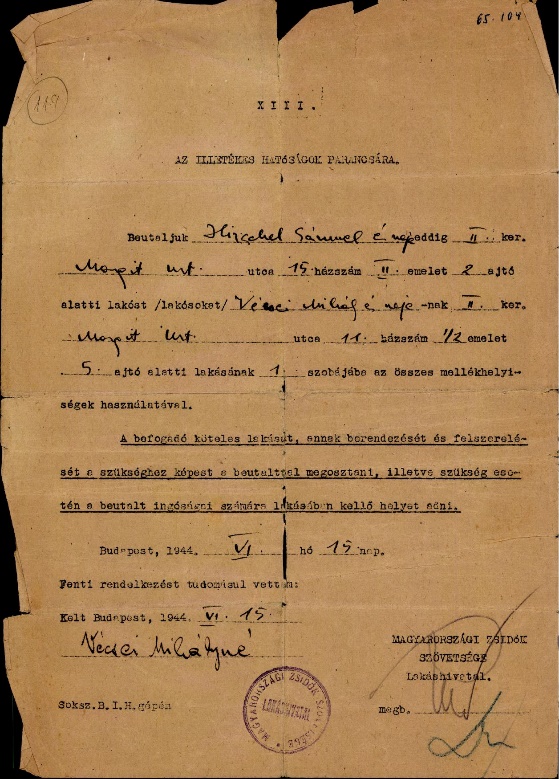 65.104
118
XIII.
AZ ILLETÉKES HATÓSÁGOK PARANCSÁRA.
Beutaljuk Hirschel Sámuel és neje eddig II. ker.
Margit krt. utca 15 házszám II. emelet 2 ajtó
alatti lakóst /lakósokat/ Vécsei Mihály és neje -nak II. ker.
Margit krt. utca 11. házszám 1/2 emelet
5. ajtó alatti lakásának 1 szobájába az összes mellékhelyi-
ségek használatával.
A befogadó köteles lakását, annak berendezését és felszerelé-
sét a szükséghez képest a beutalttal megosztani, illetve szükség ese-
tén a beutalt ingóságai számára lakásában kellő helyet adni.
Budapest, 1944. VI. hó 15 nap.
Fenti rendelkezést tudomásul vettem:
Kelt Budapest, 1944. VI. 15.
Vécsei Mihályné
MAGYARORSZÁGI ZSIDÓK
SZÖVETSÉGE
Lakáshivatal.
megb.
Soksz.B.I.H.gépén
MAGYARORSZÁGI ZSIDÓK SZÖVETSÉGE
LAKÁSHIVATAL